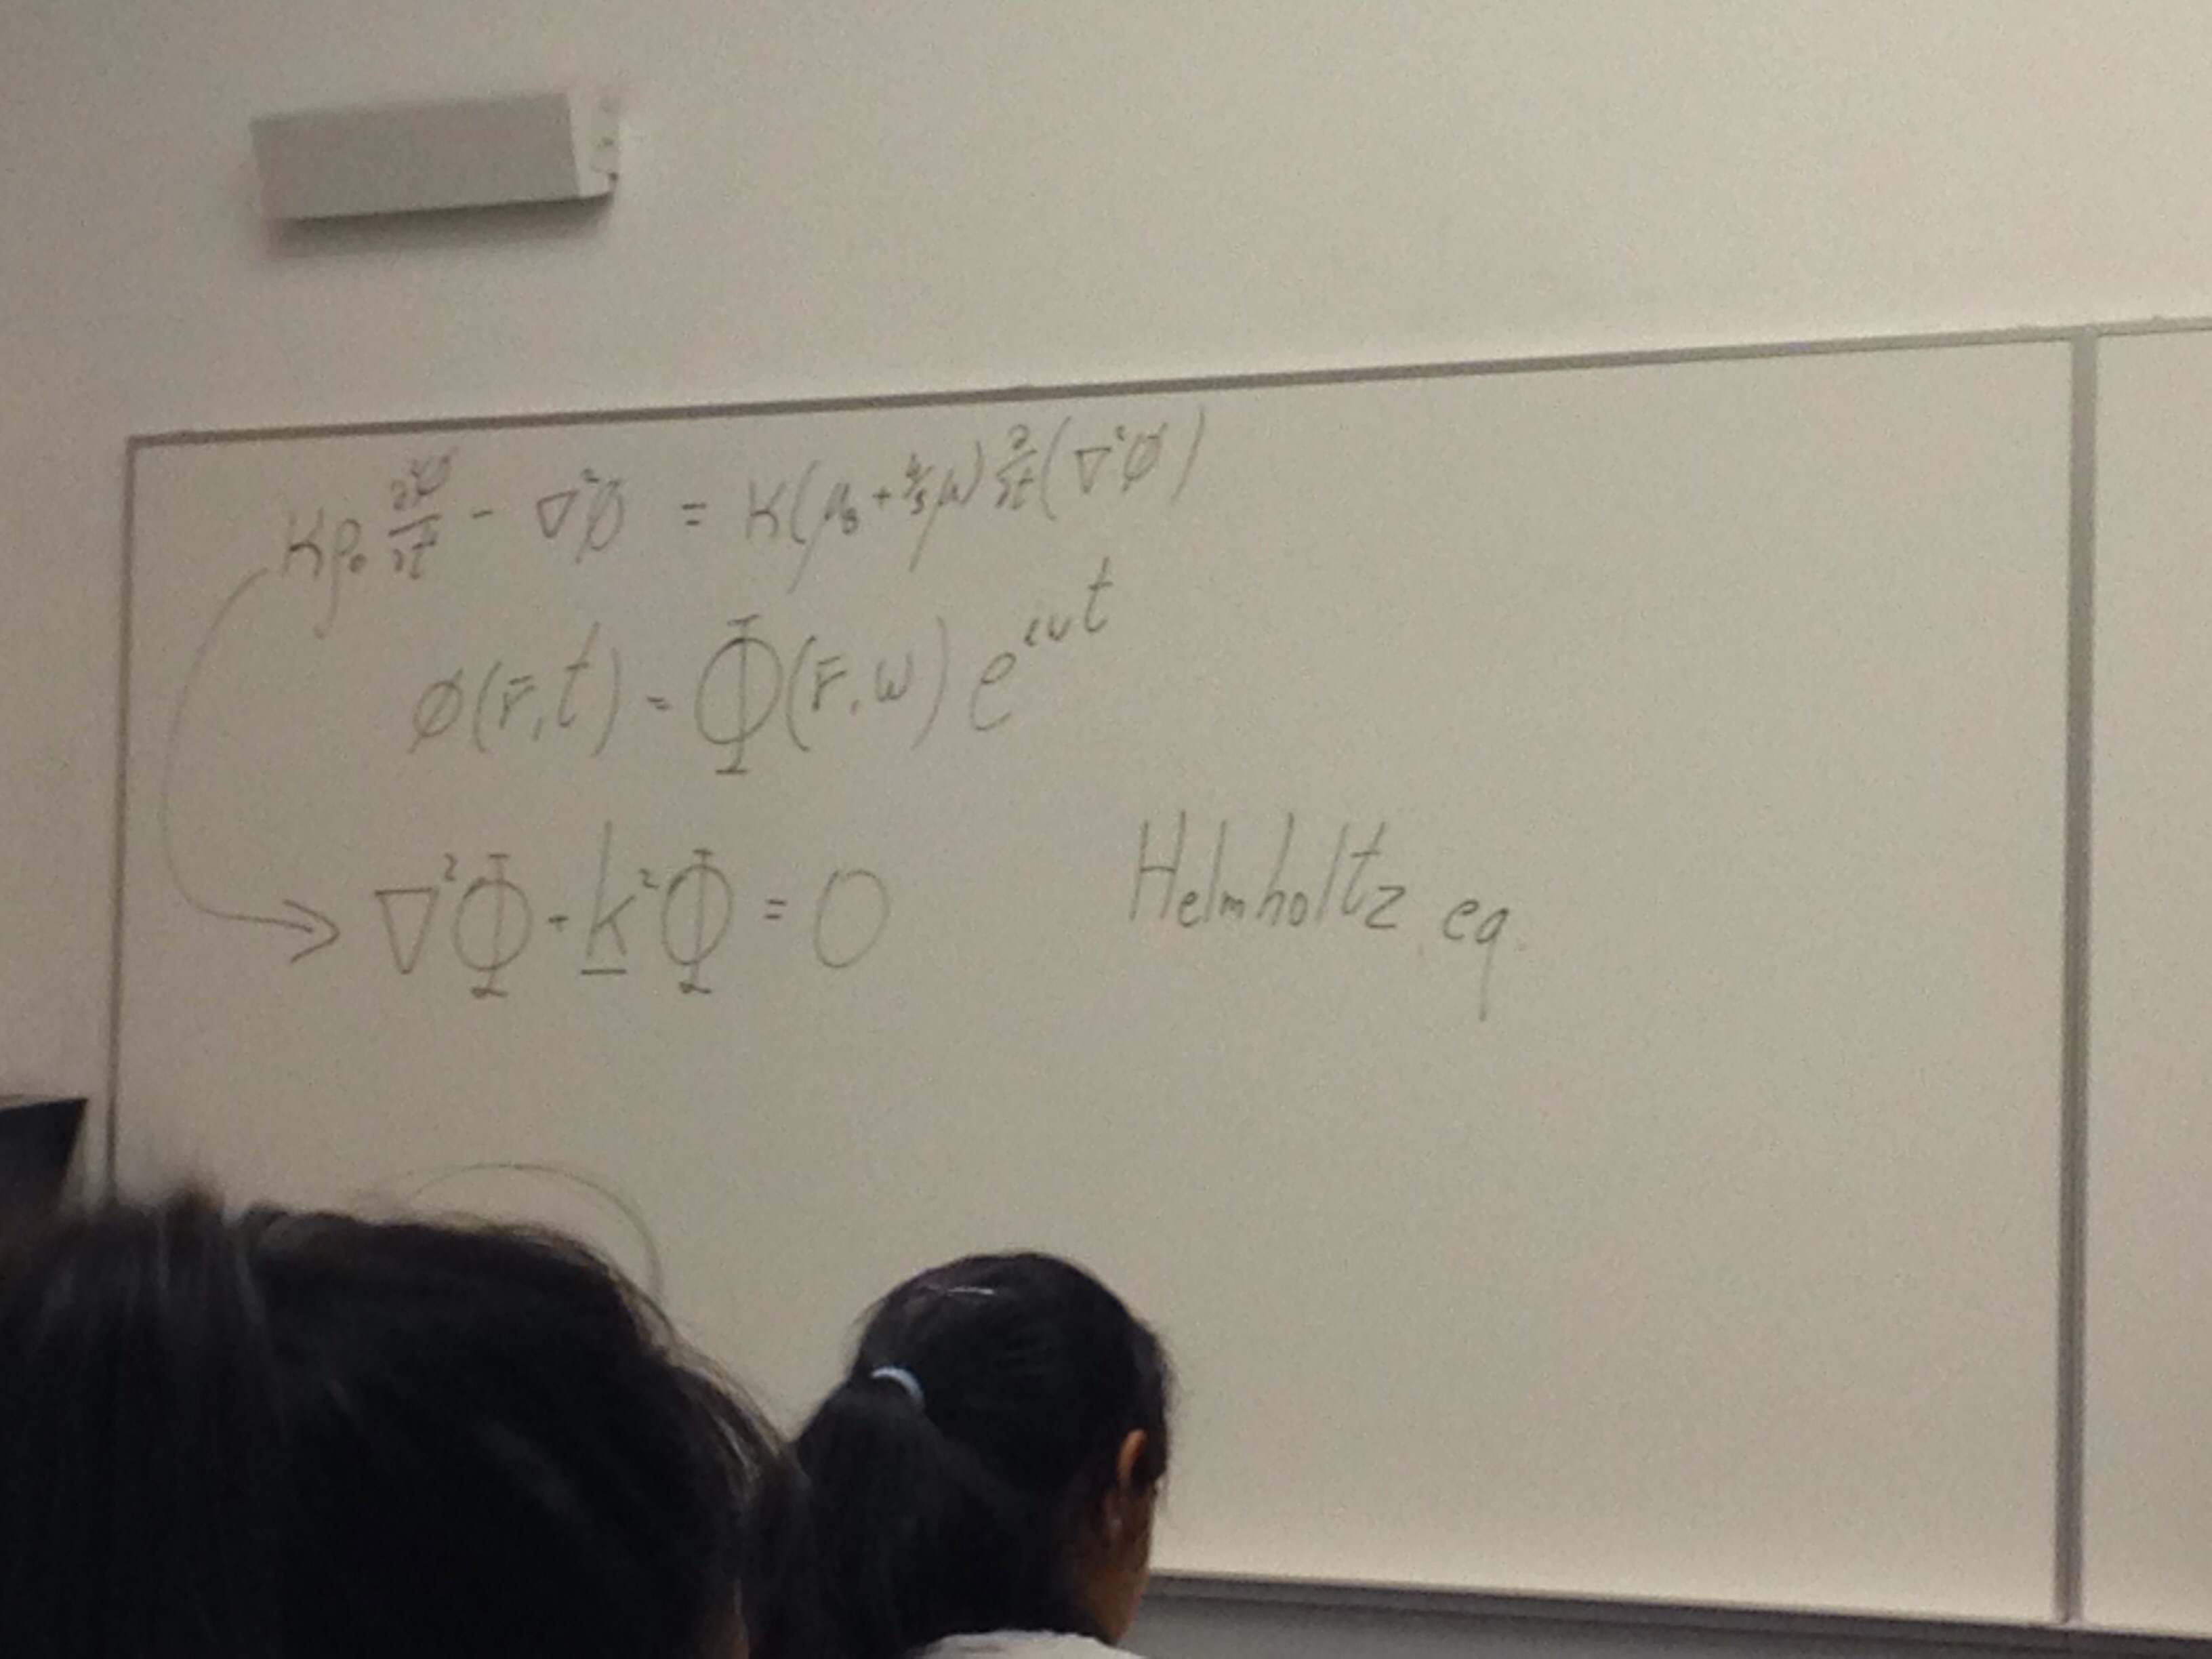 Kρ₀ ∂²ϕ/∂t² - ∇²ϕ = K(μ_B + 4/3 μ) ∂/∂t (∇²ϕ)
ϕ(r̄,t) = Φ(r̄,ω) e^{iωt}
∇²Φ + k̲²Φ = 0 Helmholtz eq.